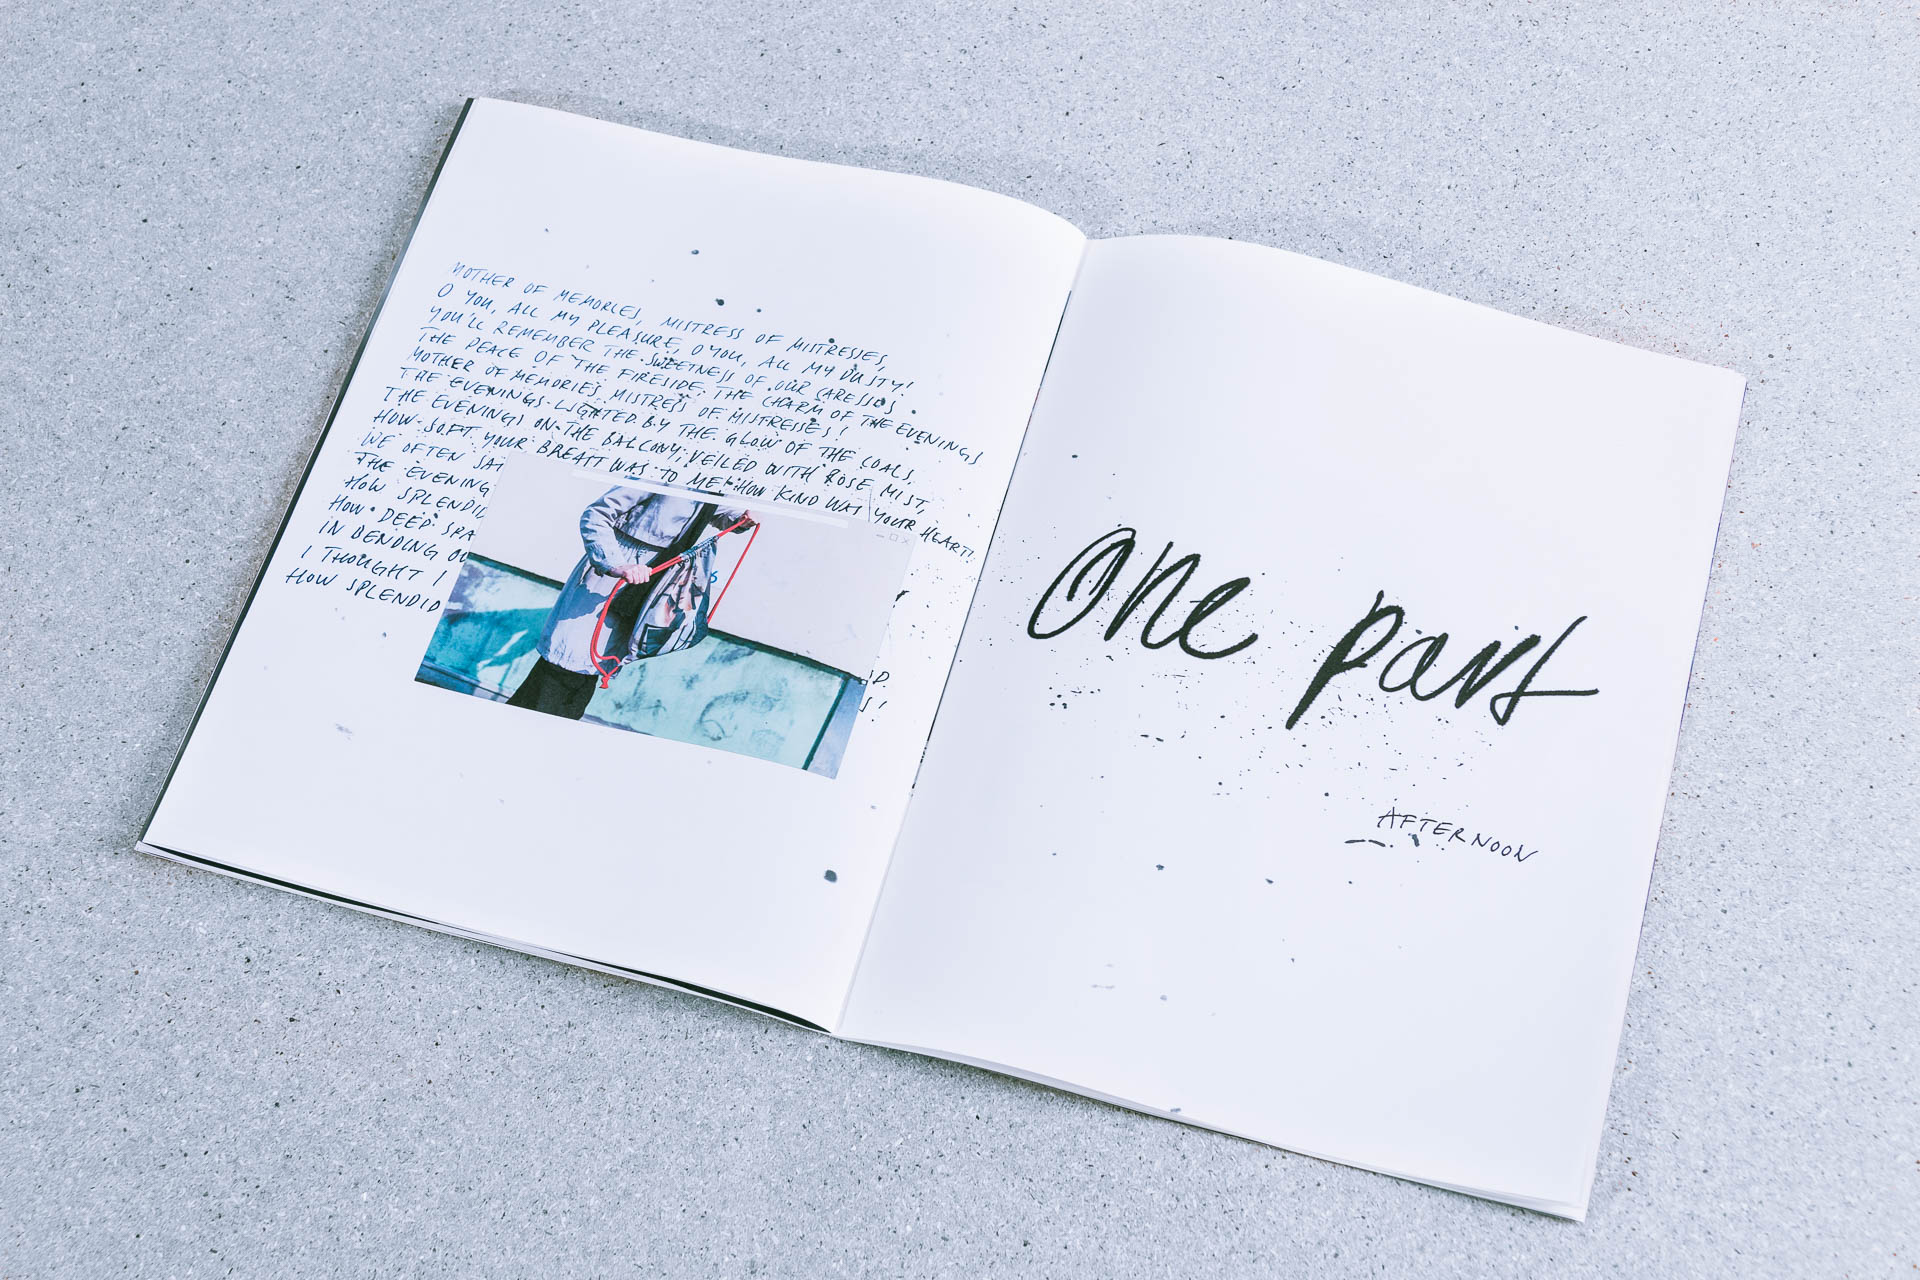 MOTHER OF MEMORIES, MISTRESS OF MISTRESSES,
O YOU, ALL MY PLEASURE, O YOU, ALL MY DUSTY!
YOU'LL REMEMBER THE SWEETNESS OF OUR CARESSES
THE PEACE OF THE FIRESIDE, THE CHARM OF THE EVENINGS
MOTHER OF MEMORIES, MISTRESS OF MISTRESSES!
THE EVENINGS LIGHTED BY THE GLOW OF THE COALS,
THE EVENINGS ON THE BALCONY, VEILED WITH ROSE MIST,
HOW SOFT YOUR BREAST WAS TO ME! HOW KIND WAS YOUR HEART!
WE OFTEN SAI
THE EVENING
HOW SPLENDID
HOW DEEP SPA
IN BENDING OV
I THOUGHT I
HOW SPLENDID
One part
AFTERNOON